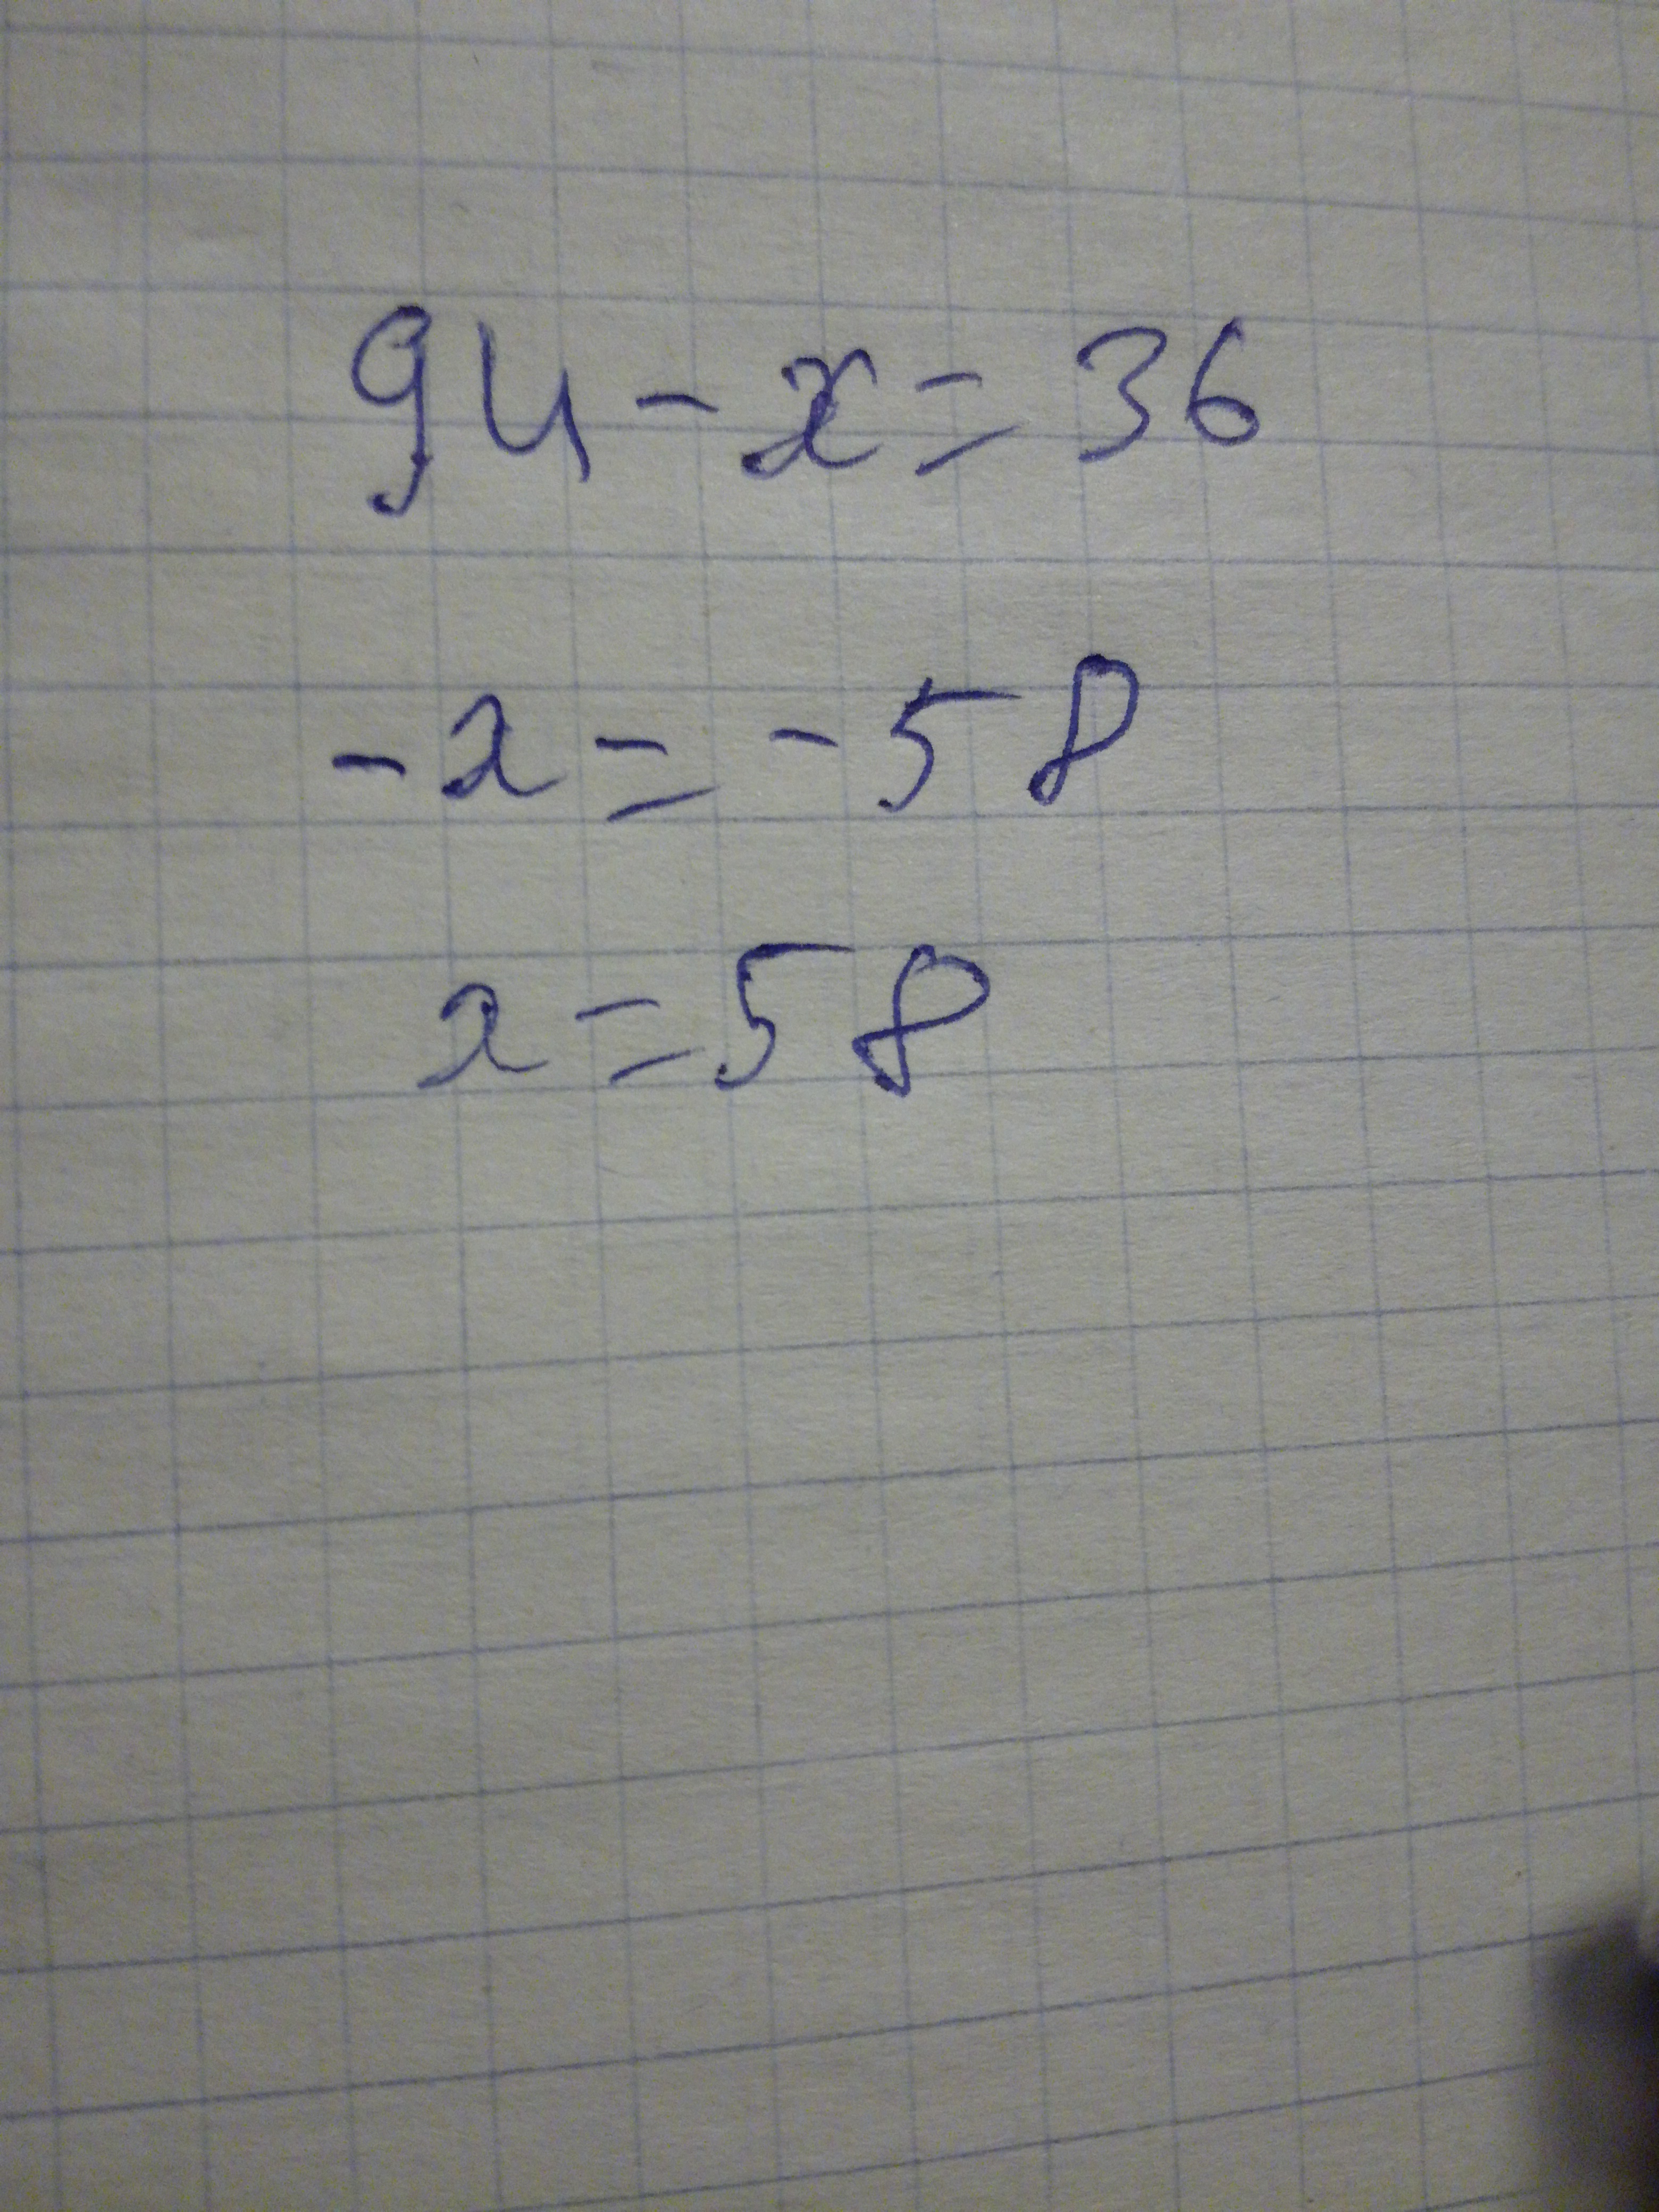 94 - x = 36
-x = -58
x = 58